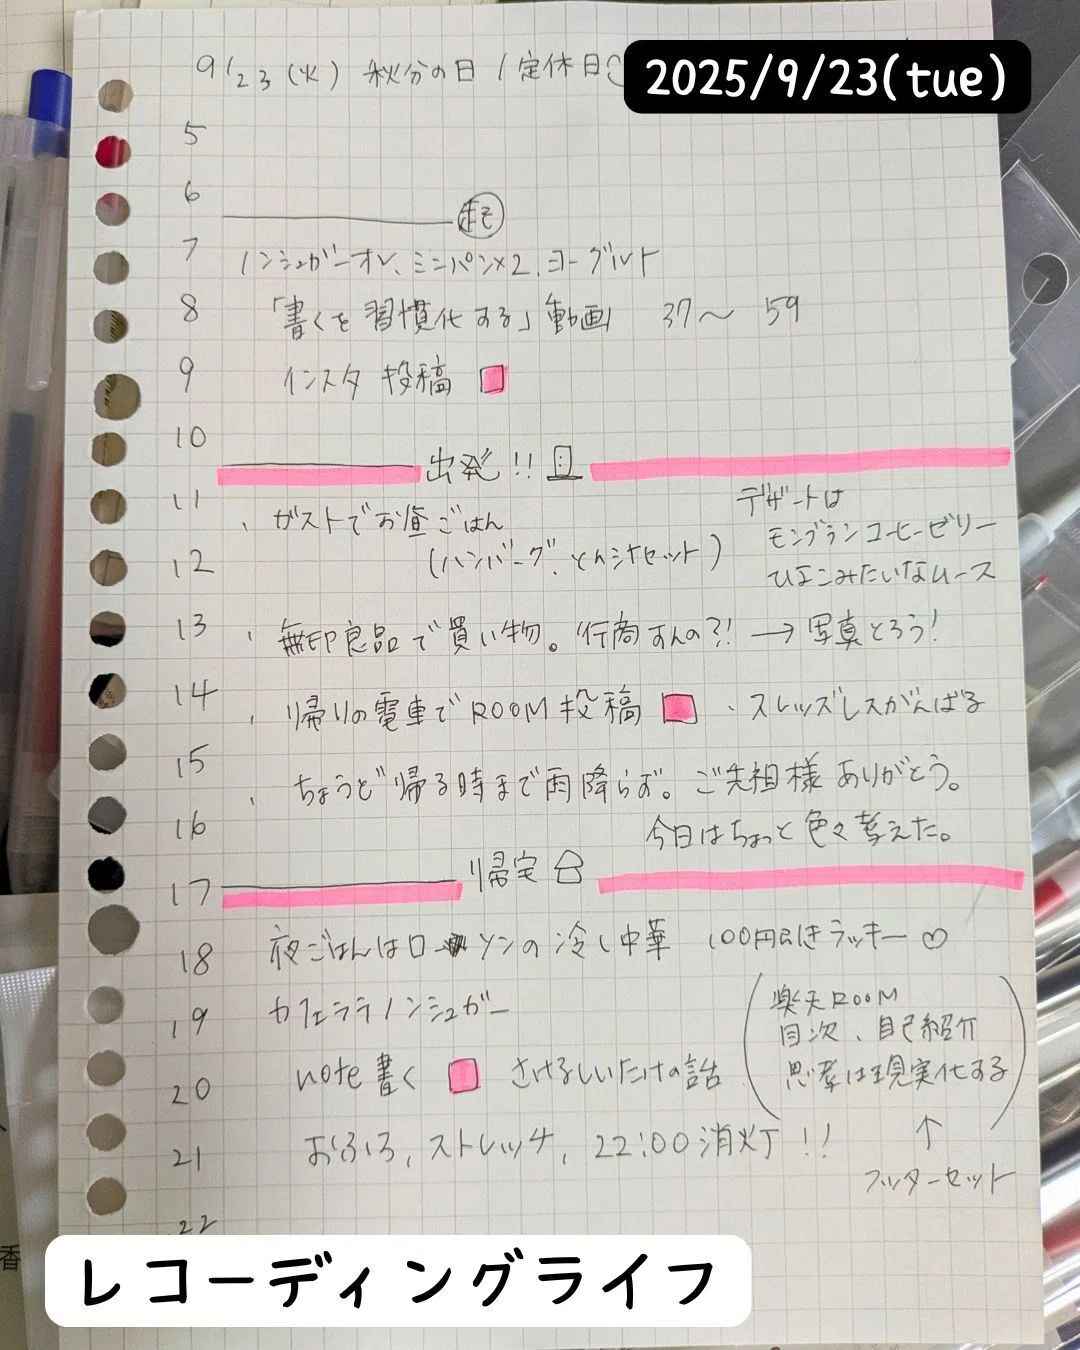 9/23(火) 秋分の日 / 定休日
2025/9/23(tue)
5
6
起
7
ノンシュガーオレ、ミニパン×2、ヨーグルト
8
「書くを習慣化する」動画 37〜 59
9
インスタ投稿
10
出発!!
11
・ガストでお昼ごはん
デザートは
12
(ハンバーグ、とん汁セット)
モンブランコーヒーゼリー
ひよこみたいなムース
13
・無印良品で買い物。行商すんの?! → 写真とろう!
14
・帰りの電車でROOM投稿 ・スレッズレスがんばる
15
・ちょうど帰る時まで雨降らず。ご先祖様ありがとう。
16
今日はちょっと色々考えた。
17
帰宅
18
夜ごはんはローソンの冷し中華 100円引きラッキー♡
19
カフェラテノンシュガー
(楽天ROOM
目次、自己紹介
思考は現実化する)
20
note書く さけるしいたけの話
↑
フッターセット
21
おふろ、ストレッチ、22:00消灯!!
22
香
レコーディングライフ